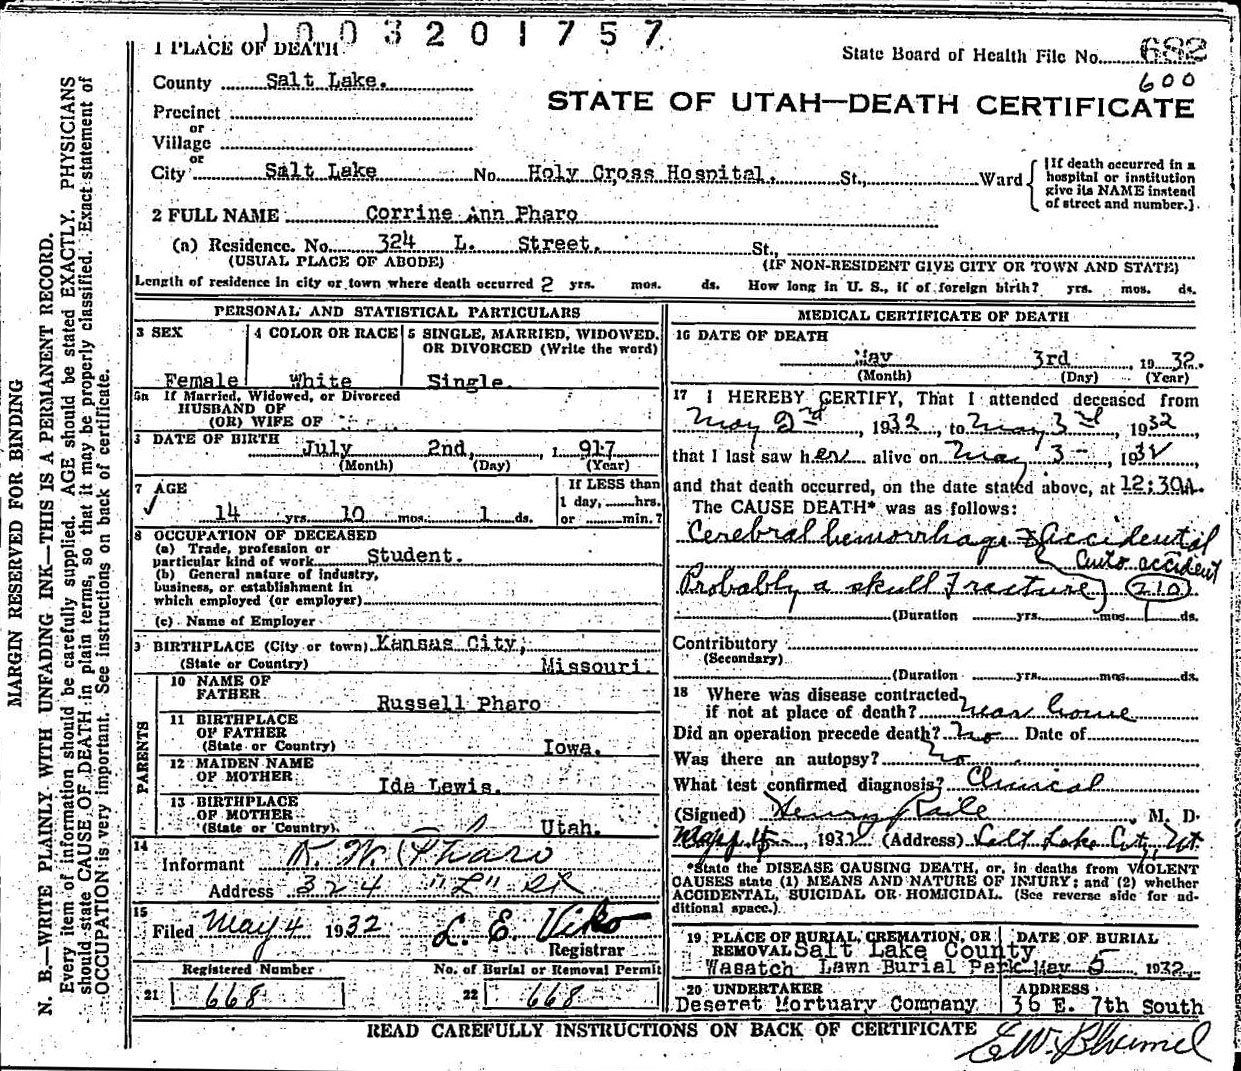 1003201757
1 PLACE OF DEATH
State Board of Health File No. 682
600
County Salt Lake.
STATE OF UTAH—DEATH CERTIFICATE
Precinct
or
Village
or
City Salt Lake No. Holy Cross Hospital. St., Ward
[If death occurred in a
hospital or institution
give its NAME instead
of street and number.]
2 FULL NAME Corrine Ann Pharo
(a) Residence. No. 324 L. Street. St.,
(USUAL PLACE OF ABODE) (IF NON-RESIDENT GIVE CITY OR TOWN AND STATE)
Length of residence in city or town where death occurred 2 yrs. mos. ds. How long in U. S., if of foreign birth? yrs. mos. ds.
PERSONAL AND STATISTICAL PARTICULARS
3 SEX
Female
4 COLOR OR RACE
White
5 SINGLE, MARRIED, WIDOWED,
OR DIVORCED (Write the word)
Single.
5a If Married, Widowed, or Divorced
HUSBAND OF
(OR) WIFE OF
DATE OF BIRTH
July 2nd, 1917
(Month) (Day) (Year)
7 AGE
14 yrs. 10 mos. 1 ds.
If LESS than
1 day, hrs.
or min.?
8 OCCUPATION OF DECEASED
(a) Trade, profession or
particular kind of work Student.
(b) General nature of industry,
business, or establishment in
which employed (or employer)
(c) Name of Employer
9 BIRTHPLACE (City or town) Kansas City,
(State or Country) Missouri.
PARENTS
10 NAME OF
FATHER
Russell Pharo
11 BIRTHPLACE
OF FATHER
(State or Country) Iowa.
12 MAIDEN NAME
OF MOTHER
Ida Lewis.
13 BIRTHPLACE
OF MOTHER
(State or Country). Utah.
14
Informant R. W. Pharo
Address 324 "L" St
15
Filed May 4 1932 L. E. Viko
Registrar
Registered Number
21 668
No. of Burial or Removal Permit
22 668
MEDICAL CERTIFICATE OF DEATH
16 DATE OF DEATH
May 3rd, 1932.
(Month) (Day) (Year)
17 I HEREBY CERTIFY, That I attended deceased from
May 2nd, 1932, to May 3rd, 1932
that I last saw her alive on May 3-, 1932,
and that death occurred, on the date stated above, at 12:30A.
The CAUSE DEATH* was as follows:
Cerebral hemorrhage Accidental
Auto accident
Probably a skull Fracture) 210
(Duration yrs. mos. 1 ds.
Contributory
(Secondary)
(Duration yrs. mos. ds.
18 Where was disease contracted
if not at place of death? near home
Did an operation precede death? no Date of
Was there an autopsy? No
What test confirmed diagnosis? Clinical
(Signed) Henry Raile, M. D.
1932 (Address) Salt Lake City, Ut.
*State the DISEASE CAUSING DEATH, or, in deaths from VIOLENT
CAUSES state (1) MEANS AND NATURE OF INJURY; and (2) whether
ACCIDENTAL, SUICIDAL OR HOMICIDAL. (See reverse side for ad-
ditional space.)
19 PLACE OF BURIAL, CREMATION, OR
REMOVAL Salt Lake County
Wasatch Lawn Burial Park
DATE OF BURIAL
May 5 1932.
20 UNDERTAKER
Deseret Mortuary Company
ADDRESS
36 E. 7th South
READ CAREFULLY INSTRUCTIONS ON BACK OF CERTIFICATE
MARGIN RESERVED FOR BINDING
N. B.—WRITE PLAINLY WITH UNFADING INK—THIS IS A PERMANENT RECORD.
Every item of information should be carefully supplied. AGE should be stated EXACTLY. PHYSICIANS
should state CAUSE OF DEATH in plain terms, so that it may be properly classified. Exact statement of
OCCUPATION is very important. See instructions on back of certificate.